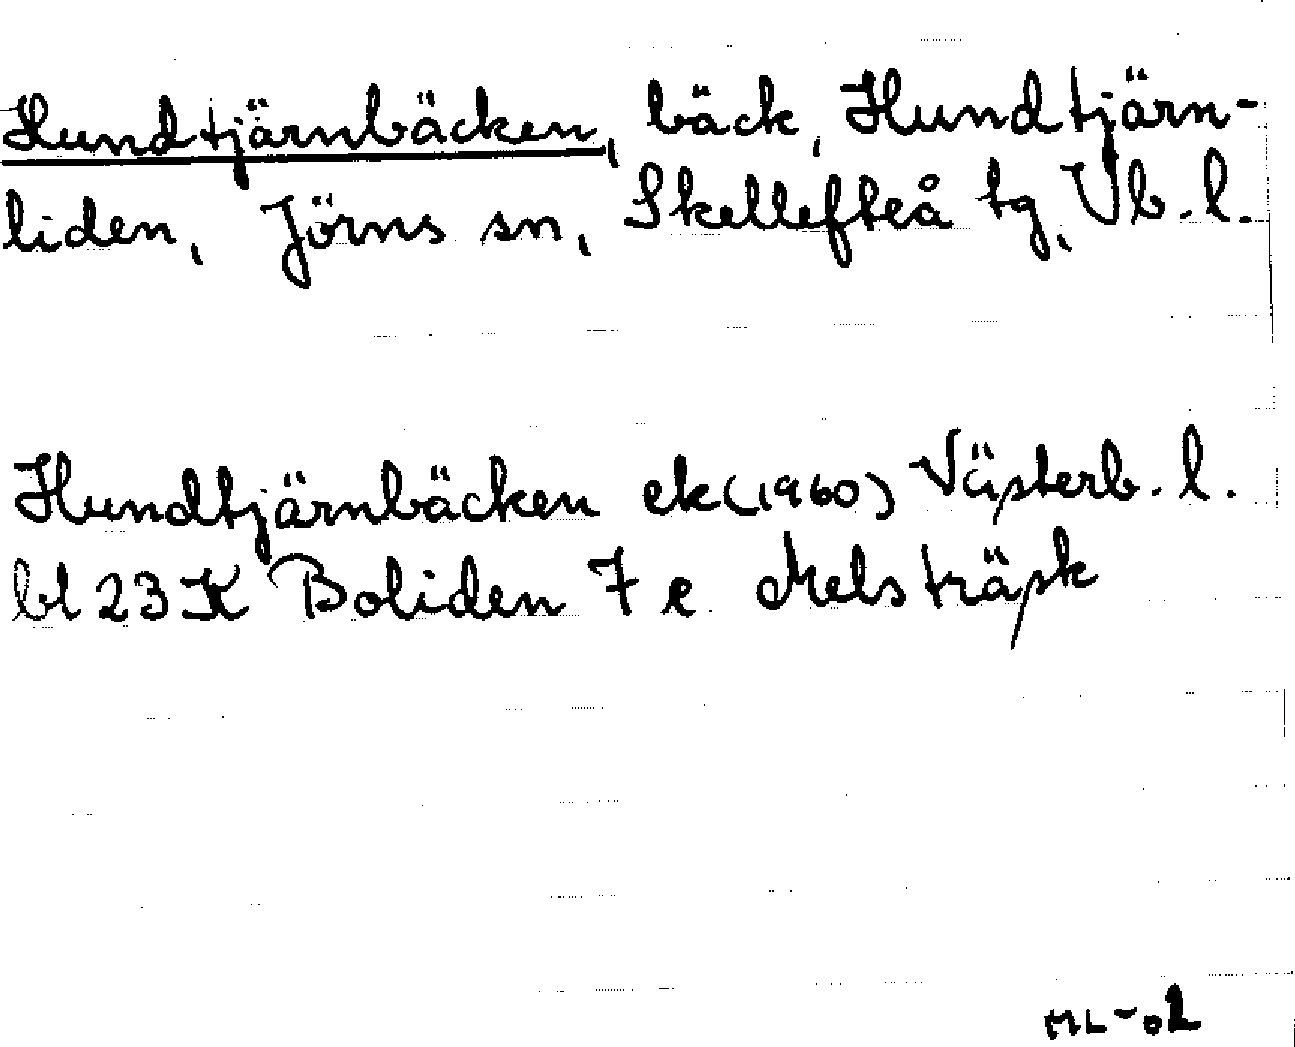 Hundtjärnbäcken, bäck, Hundtjärn-
liden, Jörns sn, Skellefteå tg, Vb. l.
Hundtjärnbäcken ek (1960) Västerb. l.
bl 23 K Boliden 7 e Melsträsk
ML-02